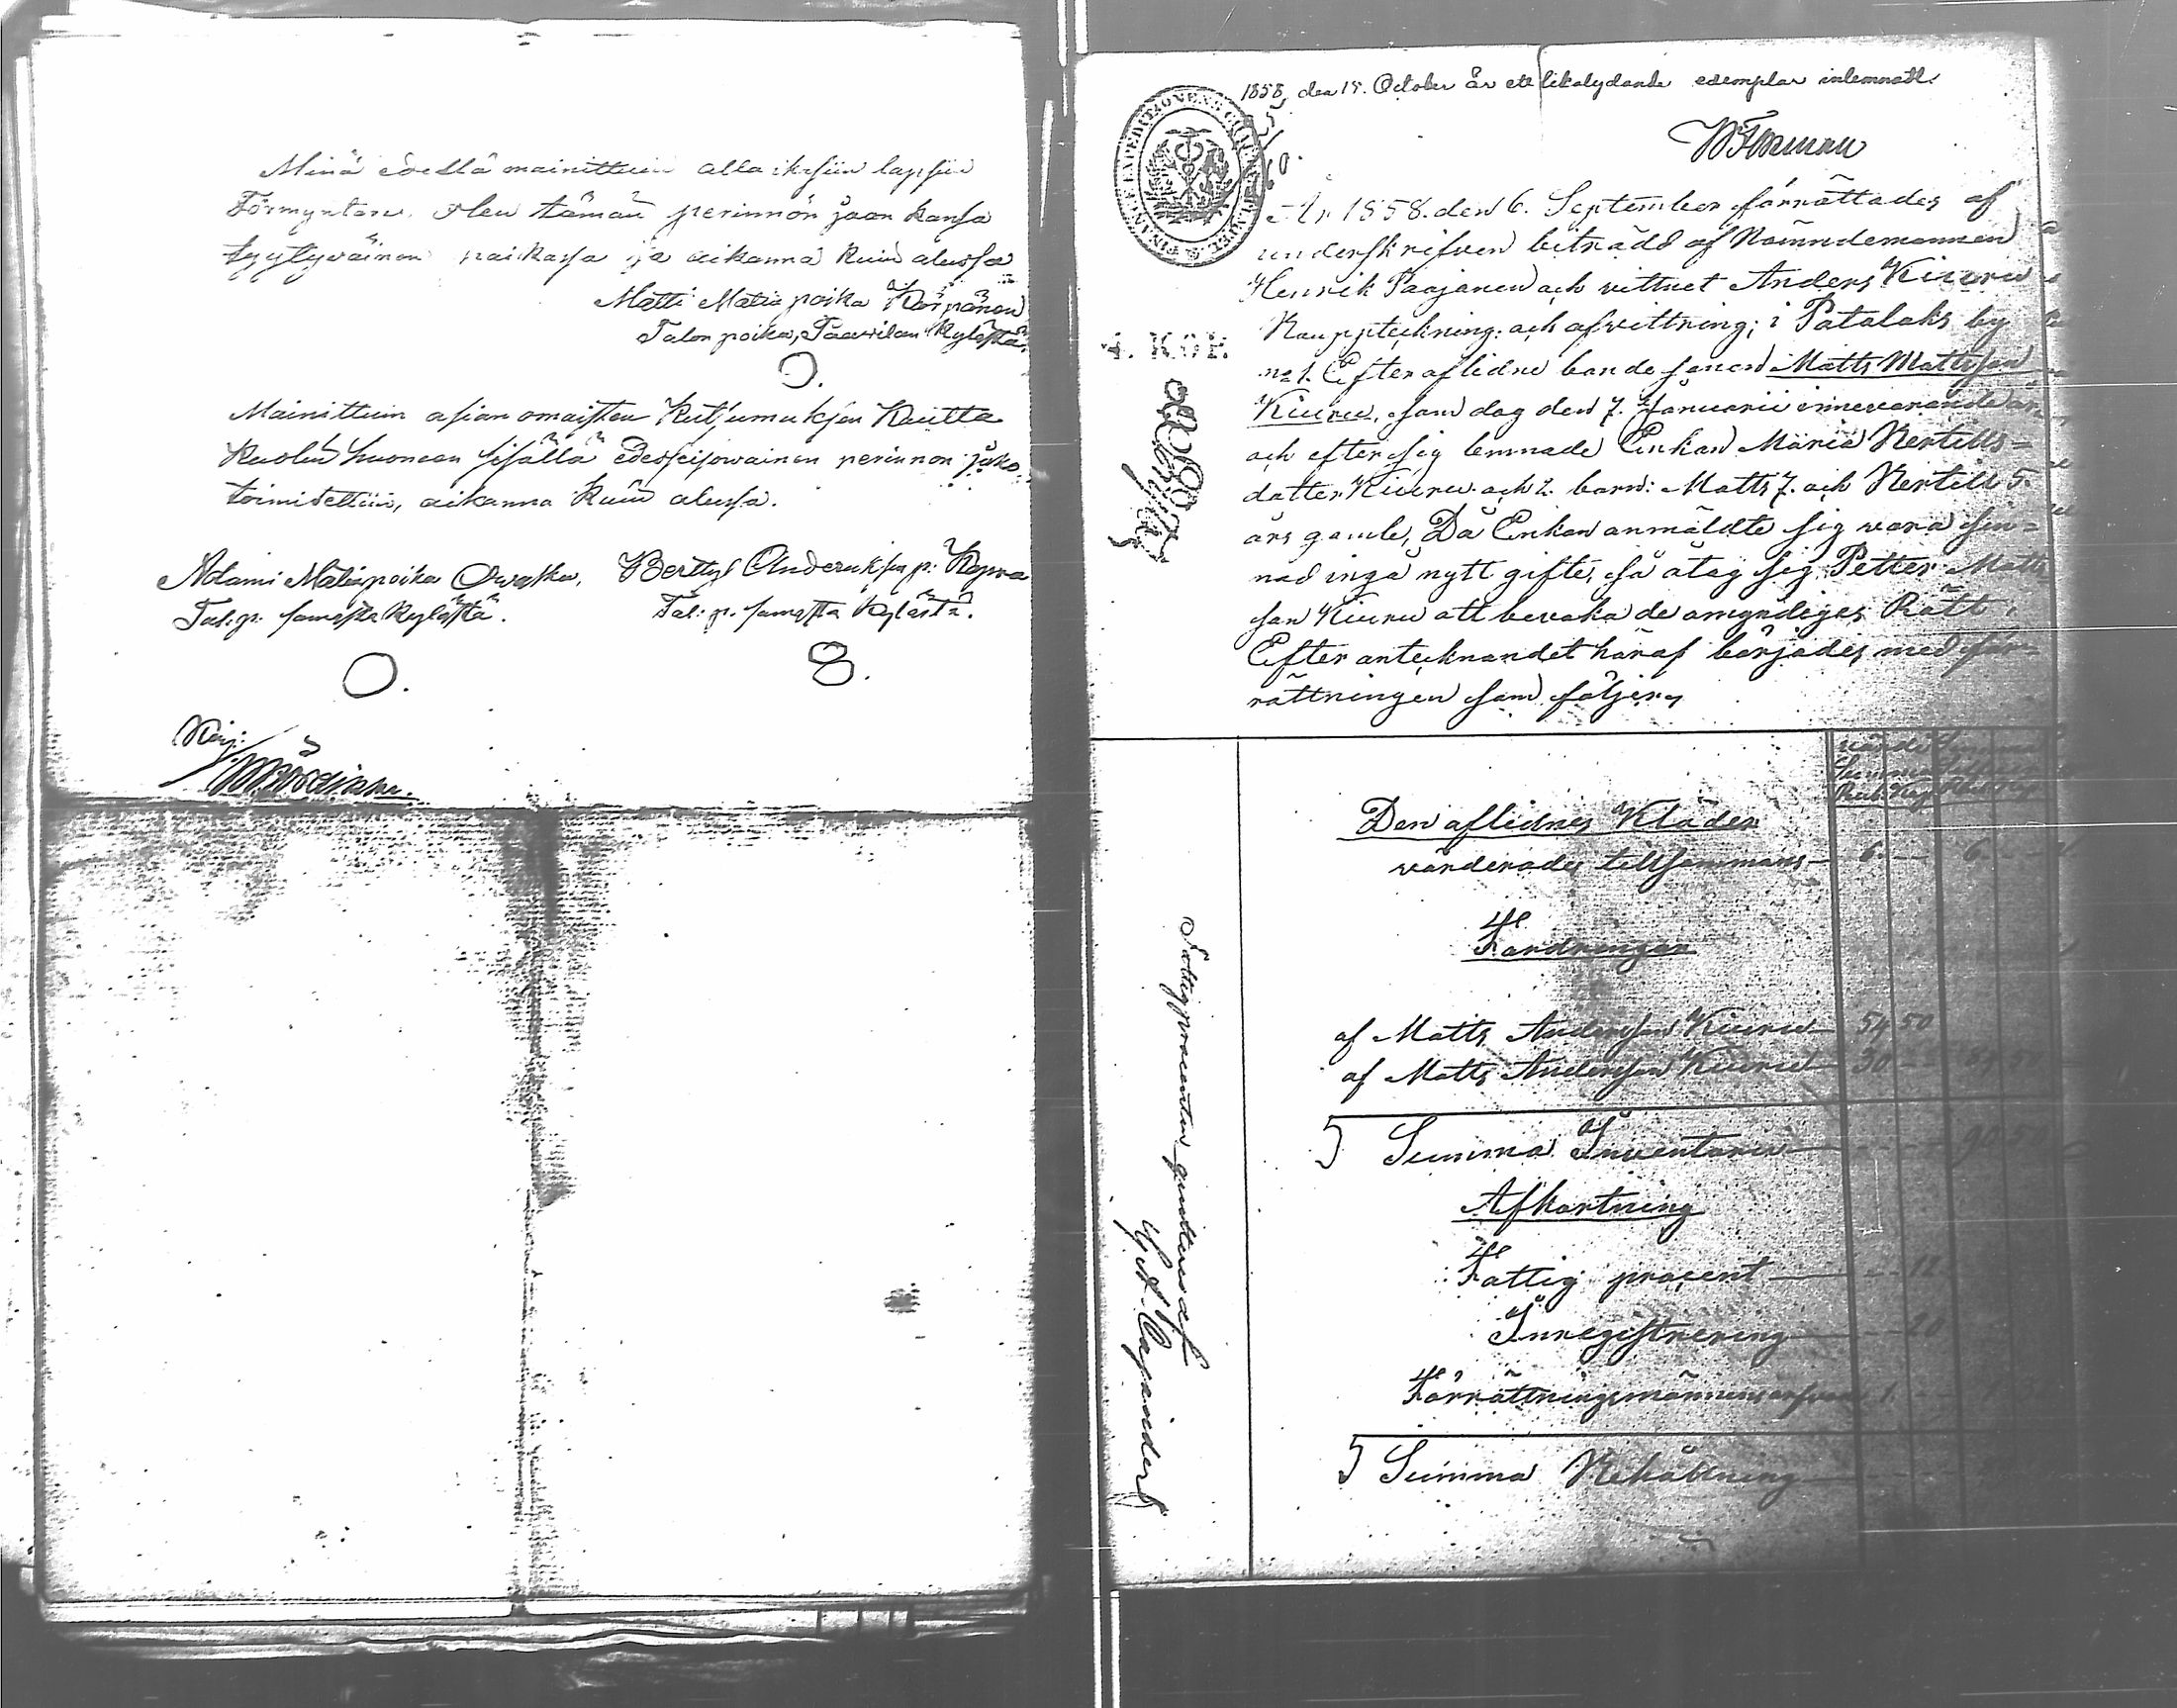 Minä edellä mainittuin alla ikäsiin lapsiin
Förmyntäre, olen tämän perinnön jaon kansa
tyytyväinen paikassa ja aikanna kuin alussa
Matti Matinpoika Kärpänen
Talon poika, Taavilan Kylästä.
Mainittuin asian omaisten Kutzumuksen Kautta
Kuolin huoneen sisällä edesseisowainen perinnon jako
toimitettiin, aikanna kuin alussa.
Adami Matinpoika Bertly Anderuksen p:
Tal: p. samasta Kylästä. Tal: p. samasta Kylästä.
Kirj:
1858, den 15. October är ett likalydande exemplar inlemnadt.
FINANCE EXPEDITIONENS
År 1858. den 6. September förrättades af
underskrifven biträdd af Nämndemannen
Henrik Paajanen och vittnet Anders Kiuru
Kauppteckning och afvittring; i Patalaks by
No 1. Efter aflidne bonde sonen Matts Mattsson
Kiuru, som dog den 7. Januarii innevarande år
och efter sig lemnade Enkan Maria Kertills-
dotter Kiuru och 2. barn: Matts 7. och Kertill 5.
års gamle, Då Enkan anmäldte sig wara sin-
nad ingå nytt gifte, så åtog sig Petter Matts
son Kiuru att bevaka de omyndiges Rätt.
Efter antecknandet häraf börjades med för-
rättningen som följer,
4. KOP.
Den aflidnes Kläder
värderades tillsammans 6 — 6 —
Fordringar
af Matts Andersson Kiuru 54 50
af Matts Andersson Kiuru 30 — 84 50
Summa Inventarier 90 50
Afkortning
Fattig procent — 12
Inregistrering — 20
Förrättningsmännens arfvode 1.
Summa Behållning
Fattigprocenten quitteras af